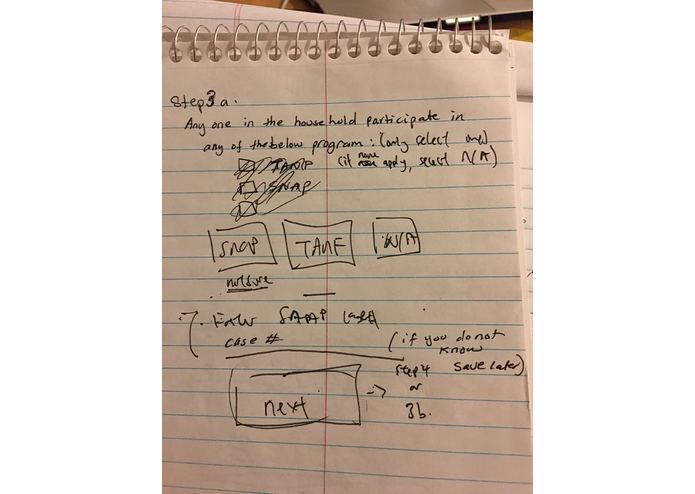 Step 3a.
Any one in the household participate in
any of the below program: (only select one)
(if none apply, select N/A)
TANF
SNAP
SNAP TANF N/A
not sure
Enter SNAP
case # (if you do not
know
save later)
next -> step 4
or
3b.